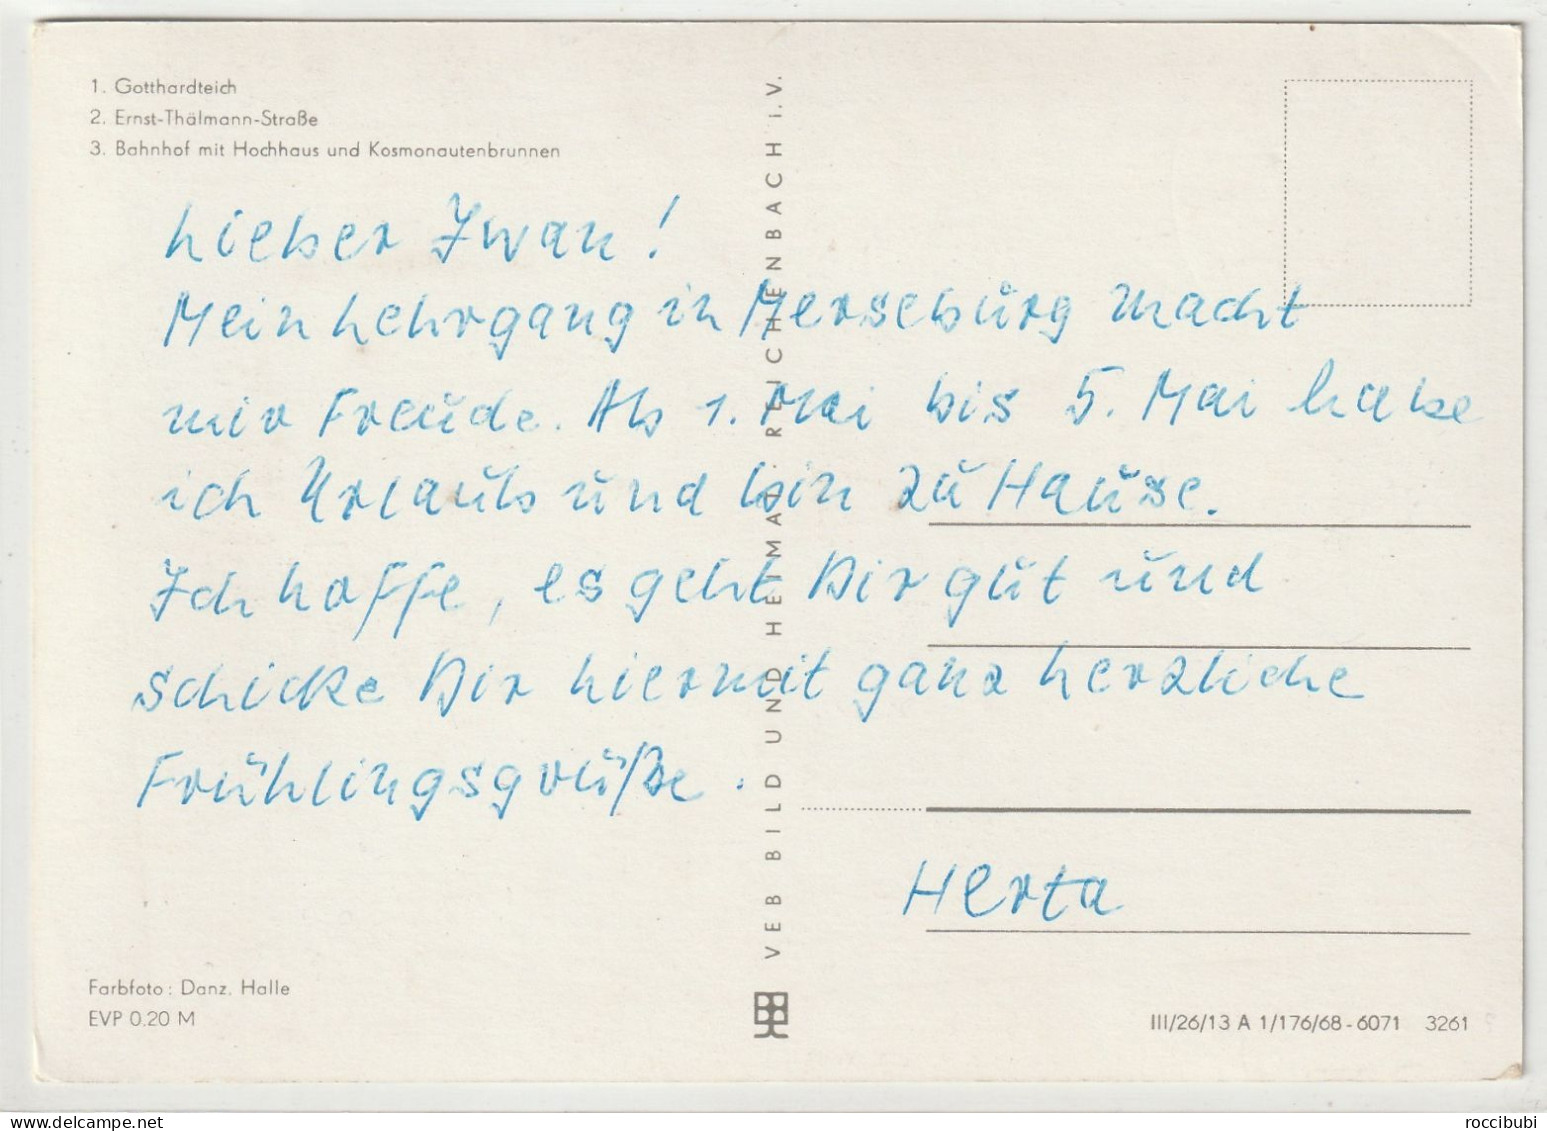 1. Gotthardteich
2. Ernst-Thälmann-Straße
3. Bahnhof mit Hochhaus und Kosmonautenbrunnen
Lieber Iwan!
Mein Lehrgang in Merseburg macht
mir Freude. Ab 1. Mai bis 5. Mai habe
ich Urlaub und bin zu Hause.
Ich hoffe, es geht Dir gut und
schicke Dir hiermit ganz herzliche
Frühlingsgrüße.
Herta
VEB BILD UND HEIMAT REICHENBACH i.V.
Farbfoto: Danz, Halle
EVP 0.20 M
III/26/13 A 1/176/68-6071 3261
www.delcampe.net
roccibubi